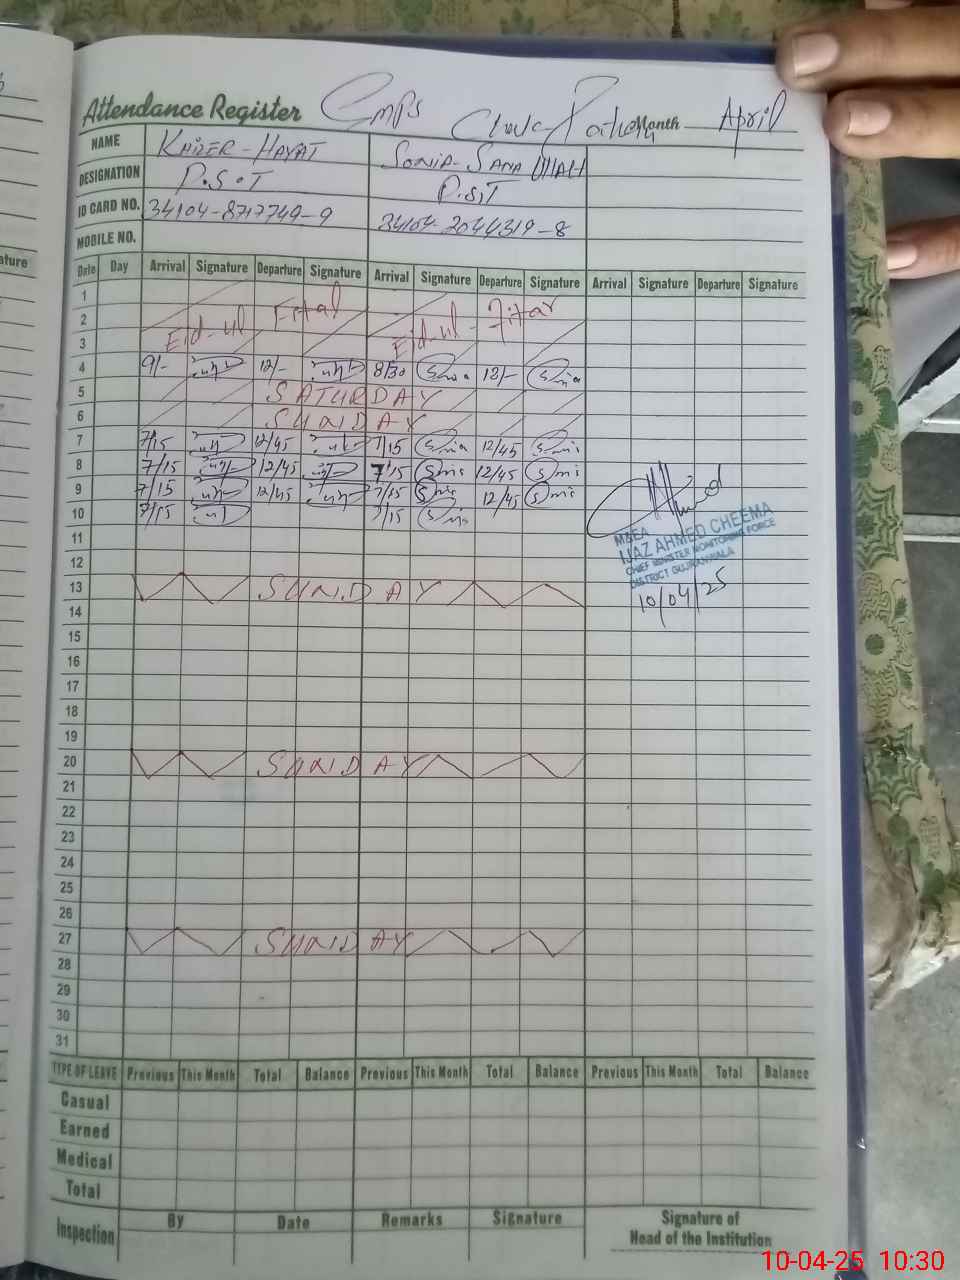 Attendance Register GMPS Month April
NAME KAIZER-HAYAT SONIA-SANA ULLAH
DESIGNATION P.S.T P.S.T
ID CARD NO. 34104-8717749-9 34104-2044319-8
MOBILE NO.
Date Day Arrival Signature Departure Signature Arrival Signature Departure Signature Arrival Signature Departure Signature
1
2 Eid-ul Fital Eid-ul-Fitar
3
4 9/- 12/- 8/30 Sonia 12/- Sonia
5 SATURDAY
6 SUNDAY
7 7/15 12/45 7/15 Sonia 12/45 Sonia
8 7/15 12/45 7/15 Sonia 12/45 Sonia
9 7/15 12/45 7/15 Sonia 12/45 Sonia
10 7/15 7/15 Sonia
11
12
13 SUNDAY
14
15
16
17
18
19
20 SUNDAY
21
22
23
24
25
26
27 SUNDAY
28
29
30
31
M&EA
IJAZ AHMED CHEEMA
CHIEF MINISTER MONITORING FORCE
DISTRICT GUJRANWALA
10/04/25
TYPE OF LEAVE Previous This Month Total Balance Previous This Month Total Balance Previous This Month Total Balance
Casual
Earned
Medical
Total
Inspection By Date Remarks Signature Signature of
Head of the Institution
ature
10-04-25 10:30